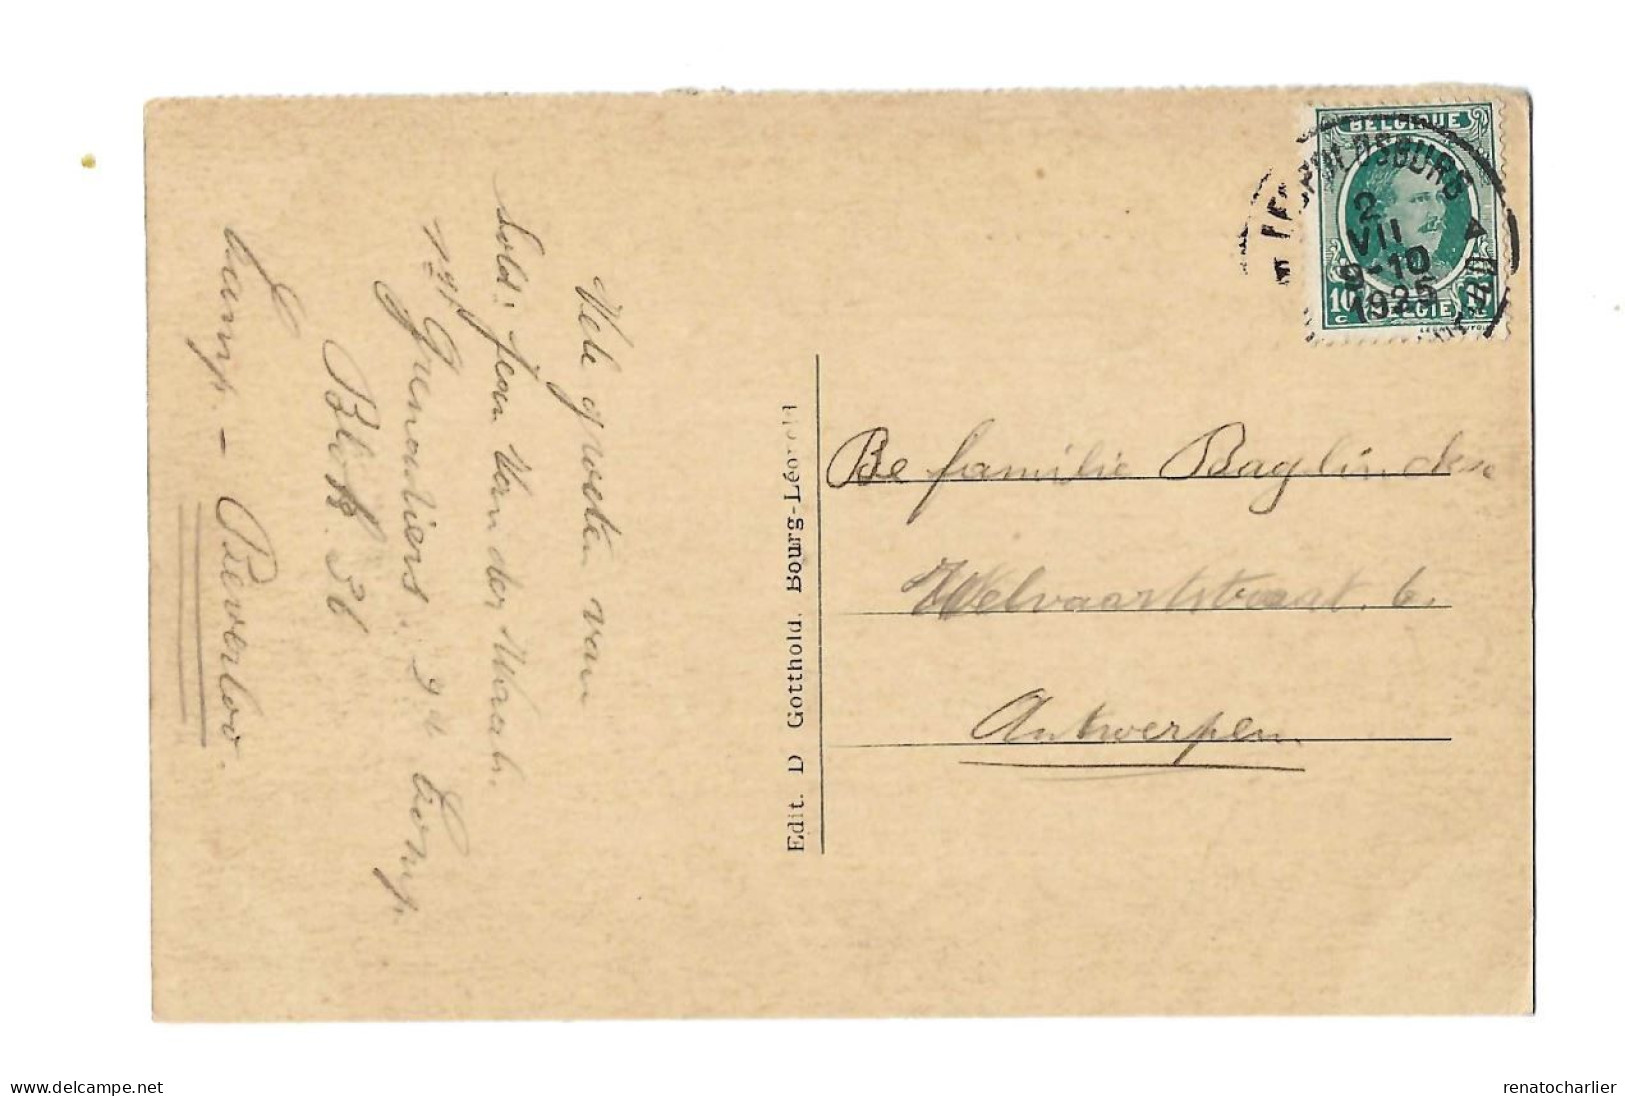 Vele groeten van
Sold: Jean Van der
Grenadiers: 3de Comp.
Blok 36
Camp - Beverloo.
Edit. D Gotthold. Bourg-Léopold
BELGIQUE
LEOPOLDSBURG
2
VII
9-10
1925
10 c
BELGIE
De familie
Welvaartstraat. 6.
Antwerpen.
delcampe.net
renatocharlier